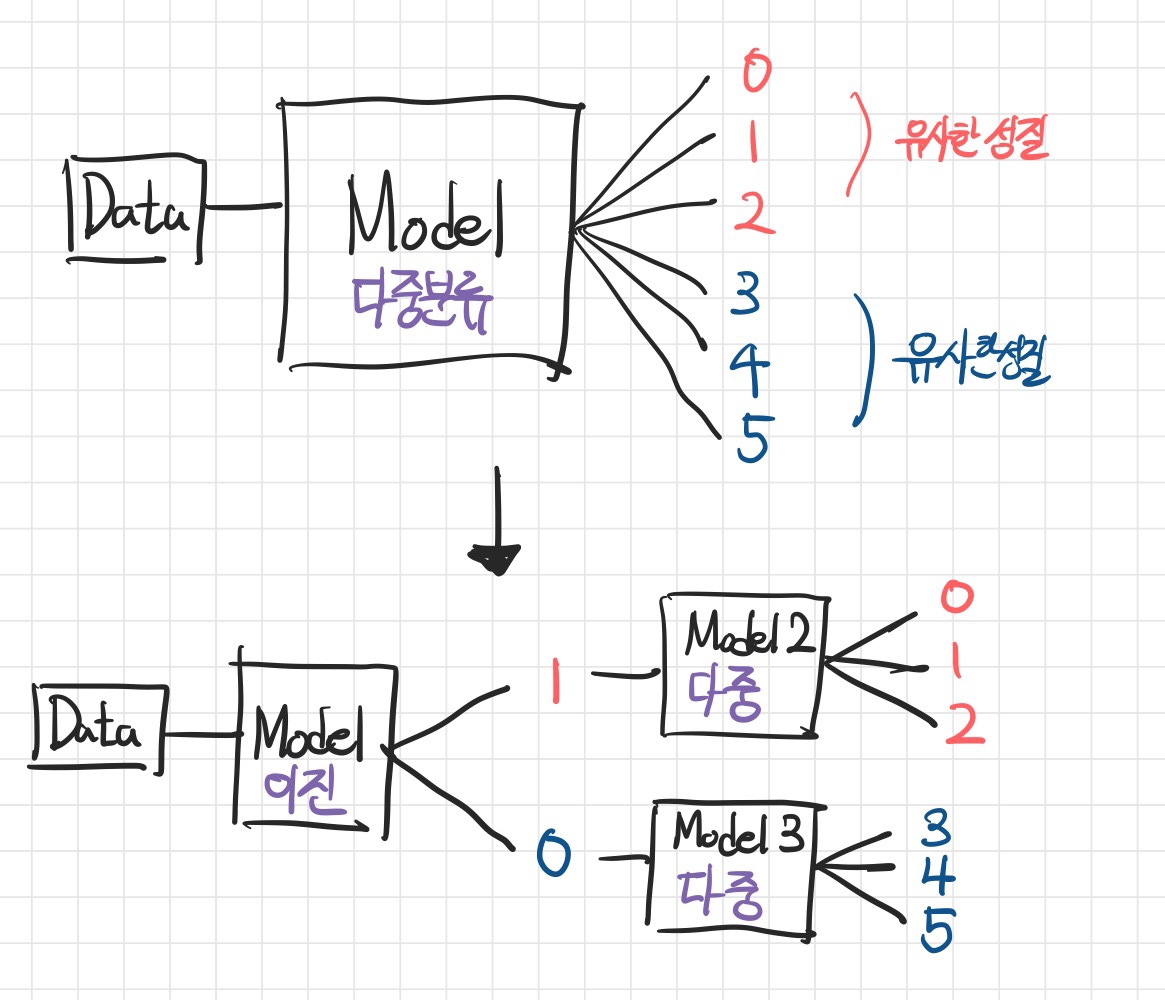 Data
Model
다중분류
0
1
2
유사한 성질
3
4
5
유사한 성질
Data
Model
이진
1
Model 2
다중
0
1
2
0
Model 3
다중
3
4
5